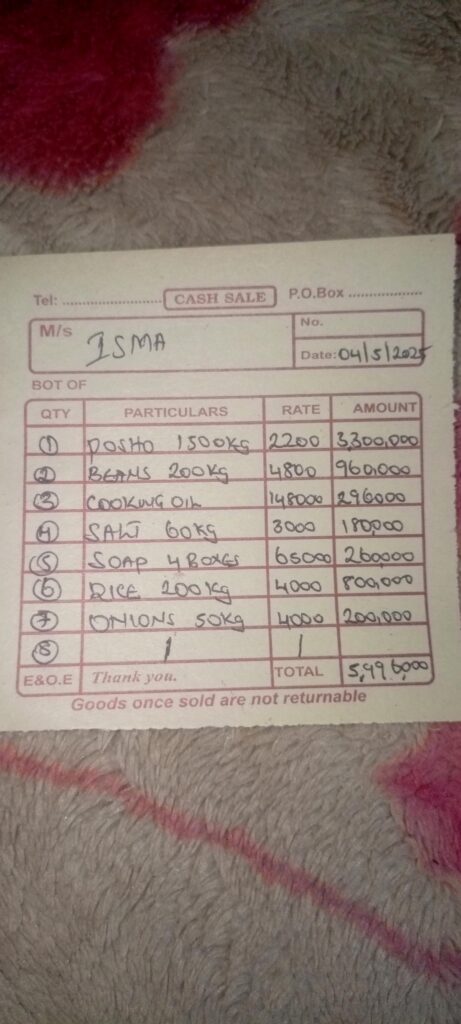 Tel: ........................ CASH SALE P.O.Box ..................
M/s ISMA No.
Date: 04/5/2025
BOT OF
QTY PARTICULARS RATE AMOUNT
1 POSHO 1500kg 2200 3,300,000
2 BEANS 200kg 4800 960,000
3 COOKING OIL 148000 296000
4 SALT 60kg 3000 180,000
5 SOAP 4 BOXES 65000 260,000
6 RICE 200kg 4000 800,000
7 ONIONS 50kg 4000 200,000
8
E&O.E Thank you. TOTAL 5,996,000
Goods once sold are not returnable